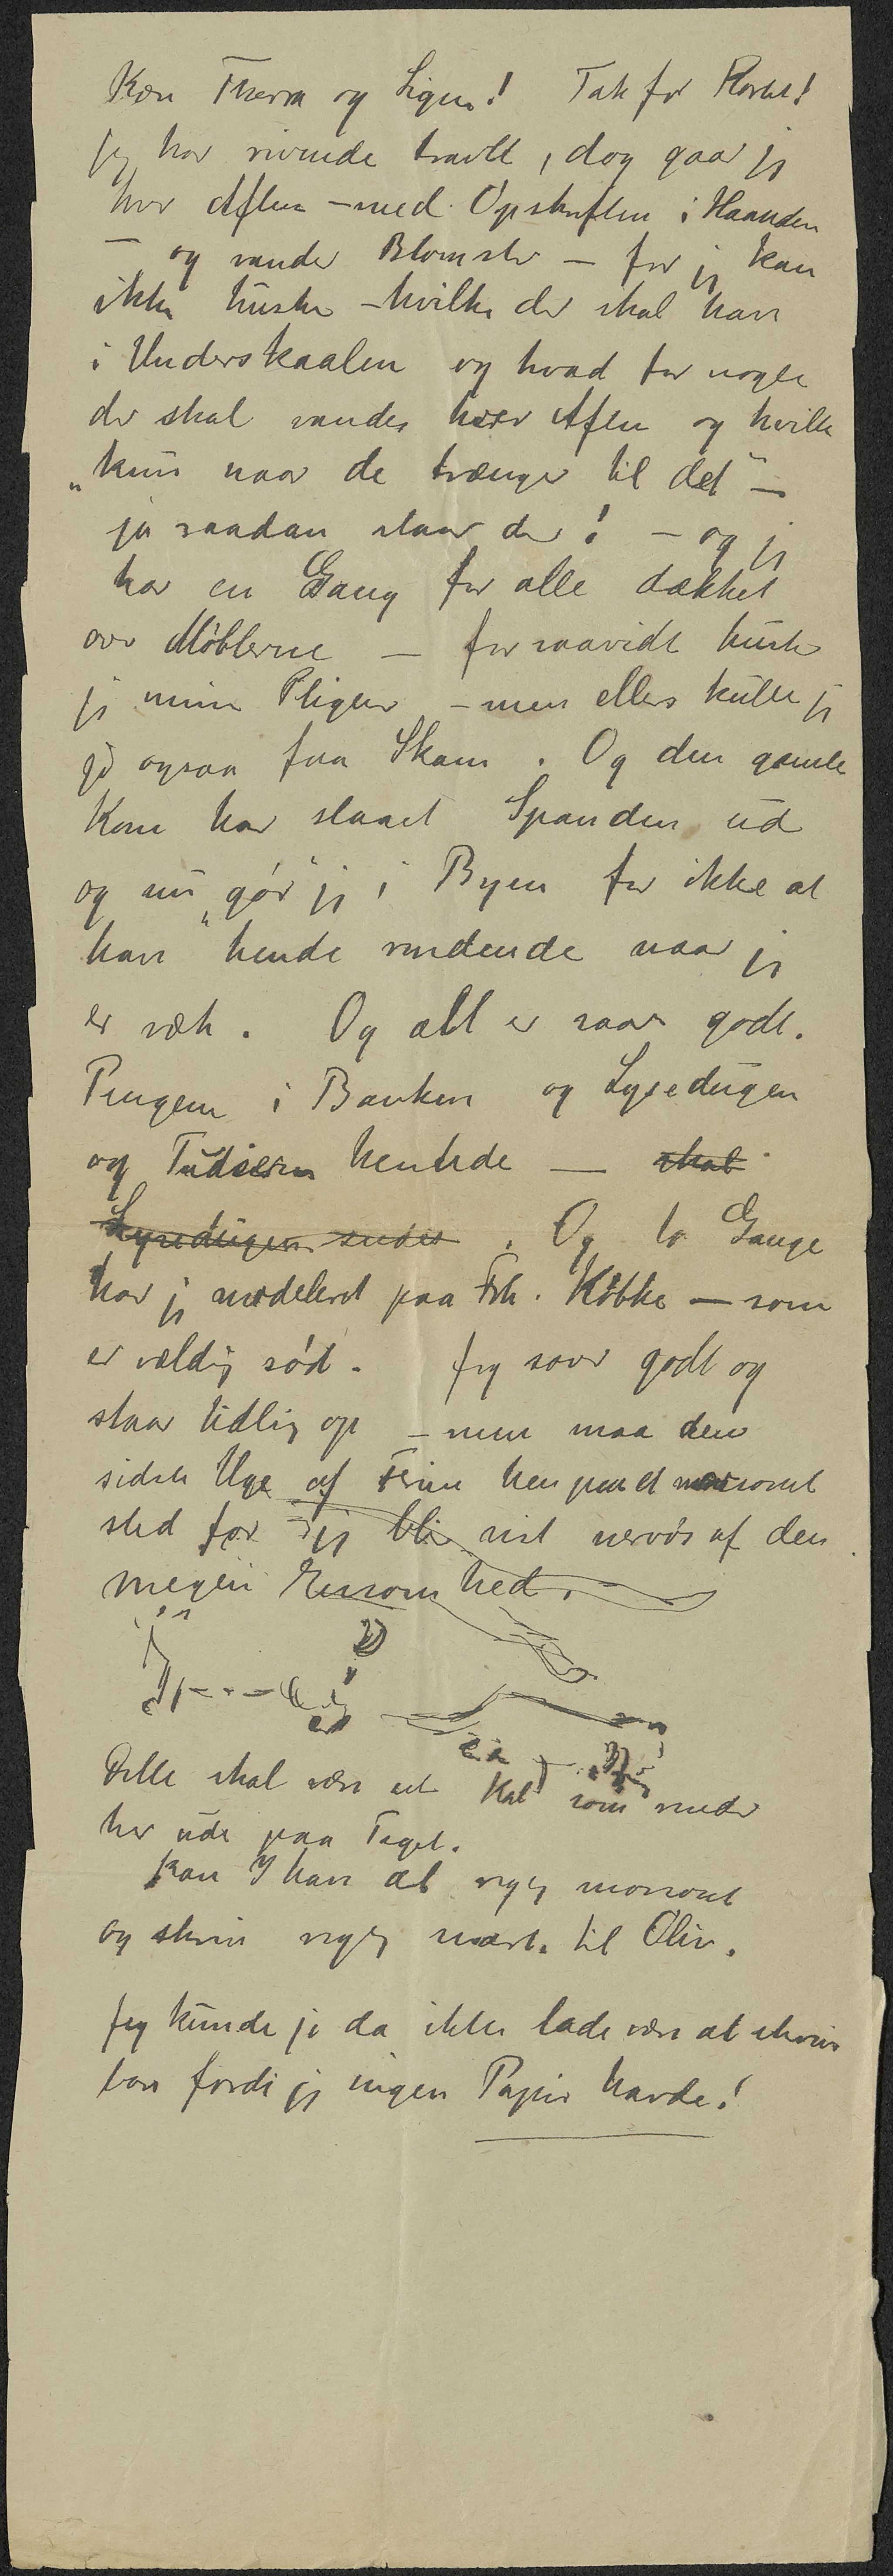 Kære Thora og Signe! Tak for Kortet!
jeg har rivende travlt, dog gaar jeg
hver Aften – med Opskriften i Haanden
– og vander Blomster – for jeg kan
ikke huske – hvilke der skal have
i Underskaalen og hvad for nogle
der skal vandes hver Aften og hvilke
„kun naar de trænger til det" –
ja saadan staar der! – og jeg
har en Gang for alle dækket
over Møblerne – for saavidt husker
jeg mine Pligter – men ellers kulle jeg
jo ogsaa faa Skam. Og den gamle
Kone har slaaet Spanden ud
og nu „gør" jeg i Byen for ikke at
have hende rendende naar jeg
er væk. Og alt er saare godt.
Pengene i Banken og Lysedugen
og hentede – skal
Lysedugen sendes. Og to Gange
har jeg modeleret paa Frk. Købke – som
er vældig sød. Jeg sover godt og
staar tidlig op – men maa den
sidste Uge af Ferien hen paa et morsomt
sted for jeg bli vist nervøs af den
megen Ensomhed.
Dette skal være en Kat som render
her ude paa Taget.
Kan I have det rigtig morsomt
og skriv rigtig snart til Oliv.
Jeg kunde jo da ikke lade være at skrive
bare fordi jeg ingen Papir havde!